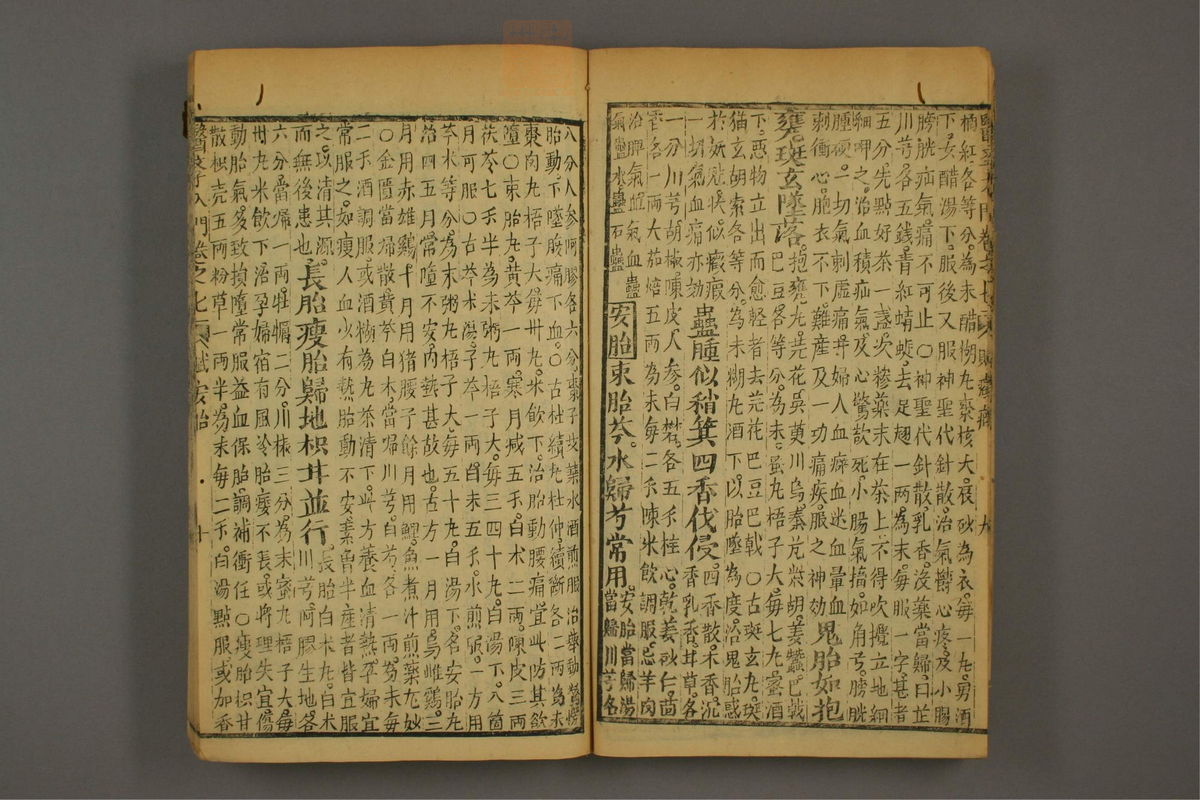 橘紅各等分爲末醋糊丸棗核大辰砂爲衣每一丸男酒
下女醋湯下服後又服神聖代針散治氣欝心疼及小腸
膀胱疝氣痛不可止○神聖代針散乳香没藥當歸白芷
川芎各五錢青紅蜻蜓去足翅一兩爲末每服一字甚者
五分先點好茶一盞次糝藥末在茶上不得吹攪立地細
細呷之治血積疝氣及心驚欲死小腸氣搐如角弓膀胱
腫硬一切氣刺虛痛并婦人血癖血迷血暈血
刺衝心胞衣不下難産及一切痛疾服之神効 鬼胎如抱
甕斑玄墜落 抱甕丸芫花吳萸川烏秦艽柴胡姜蠶巴戟
巴豆各等分爲末蜜丸梧子大每七丸蜜酒
下惡物立出而愈輕者去芫花巴豆巴戟○古斑玄丸斑
猫玄胡索各等分爲末糊丸酒下以胎墜爲度治鬼胎惑
於妖魅狀似癥瘕
一切氣血痛亦効 蠱腫似稍箕四香伐侵 四香散木香沉
香乳香甘草各
一分川芎胡椒陳皮人參白礬各五千桂心乾姜砂仁茴
香各一兩大茄焙五兩爲末每二千陳米飲調服忌羊肉
治脾氣血氣血蠱
氣蠱水蠱石蠱 安胎 束胎芩朮歸芎常用 安胎當歸湯
當歸川芎各
八分人參阿膠各六分棗子艾葉水酒煎服治舉動驚愕
胎動下墜腹痛下血○古杜續丸杜仲續斷各二兩爲末
棗肉丸梧子大每卅丸米飲下治胎動腰痛宜此防其欲
墮○束胎丸黄芩一兩寒月减五千白朮二兩陳皮三兩
茯苓七千半爲末粥丸梧子大每三四十丸白湯下八箇
月可服○古芩朮湯子芩一兩白朮五千水煎服一方用
芩朮等分爲末粥丸梧子大每五十丸白湯下名安胎丸
治四五月常墮不安内熱甚故也古方一月用烏雌雞三
月用赤雄雞十月用猪腰子餘月用鯉魚煮汁煎藥尤妙
○金匱當歸散黄芩白朮當歸川芎白芍各一兩爲末每
二千酒調服或酒糊爲丸茶清下此方養血清熱孕婦宜
常服之如瘦人血少有熱胎動不安素曾半産者皆宜服
之以清其源
而無後患也 長胎瘦胎歸地枳甘並行 長胎白朮丸白朮
川芎阿膠生地各
六分當歸一兩牡蠣二分川椒三分爲末蜜丸梧子大每
卅丸米飲下治孕婦宿有風冷胎痿不長或將理失宜傷
動胎氣多致損墮常服益血保胎調補衝任○瘦胎枳甘
散枳壳五兩粉草一兩半爲末每二千白湯點服或加香
醫家入門卷之七 賦安胎
十
九